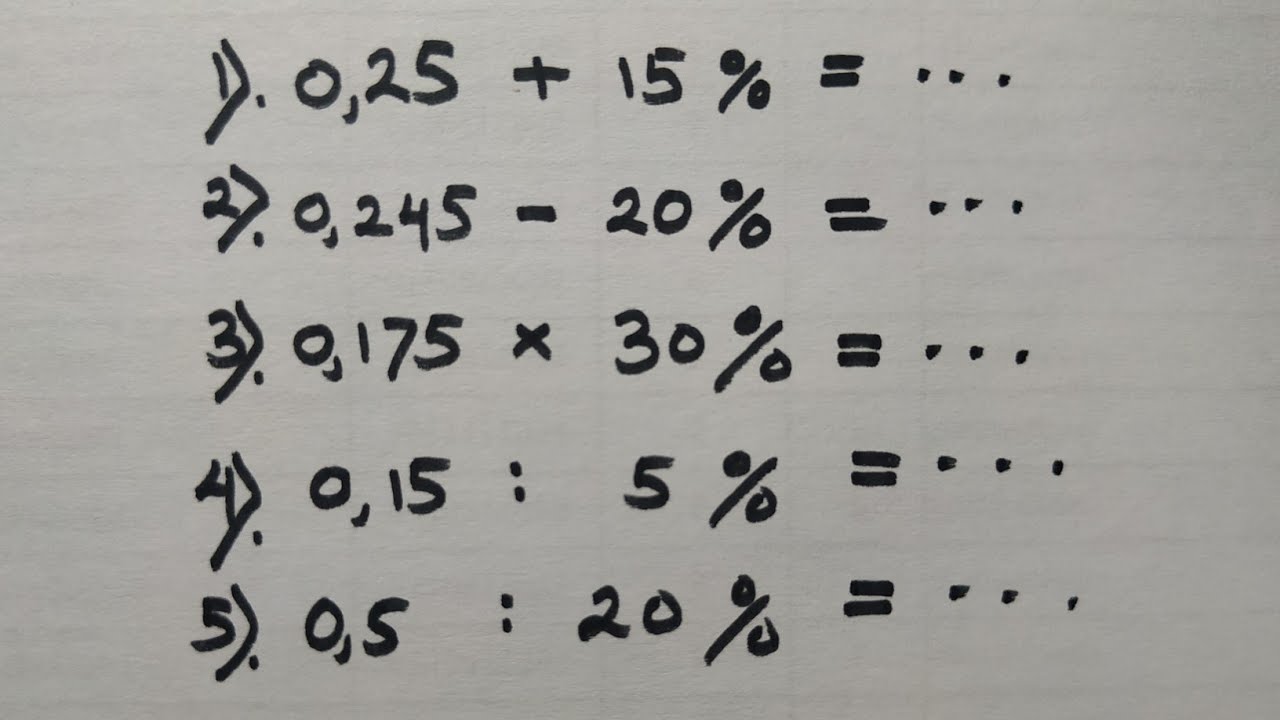 1). 0,25 + 15 % = ...
2). 0,245 - 20 % = ...
3). 0,175 × 30 % = ...
4). 0,15 : 5 % = ...
5). 0,5 : 20 % = ...